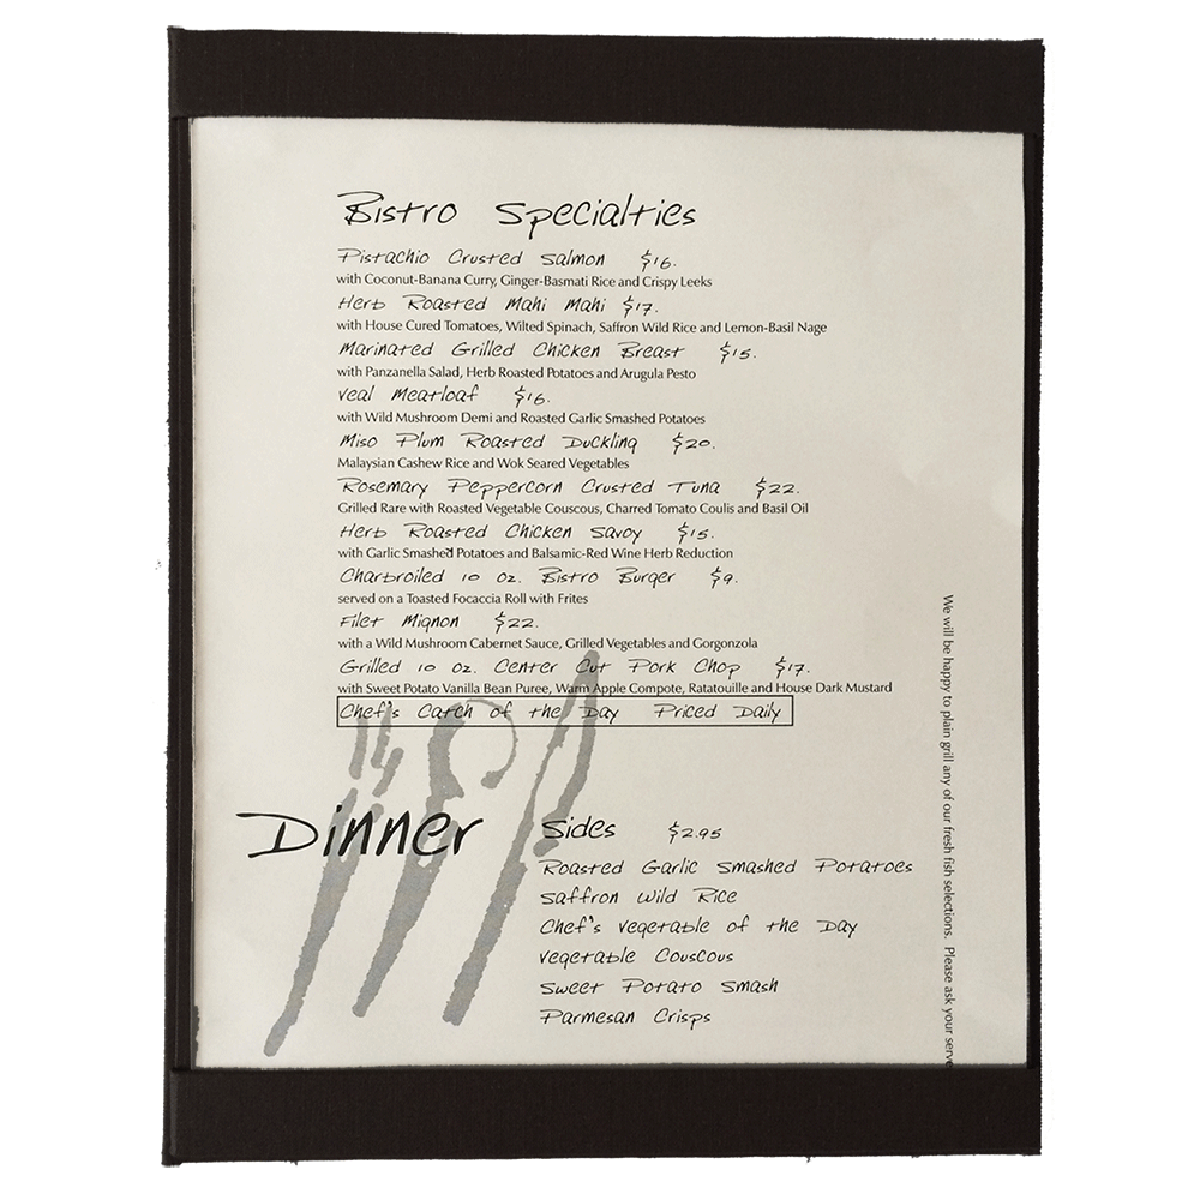 Bistro Specialties
Pistachio Crusted Salmon $16.
with Coconut-Banana Curry, Ginger-Basmati Rice and Crispy Leeks
Herb Roasted Mahi Mahi $17.
with House Cured Tomatoes, Wilted Spinach, Saffron Wild Rice and Lemon-Basil Nage
Marinated Grilled Chicken Breast $15.
with Panzanella Salad, Herb Roasted Potatoes and Arugula Pesto
Veal Meatloaf $16.
with Wild Mushroom Demi and Roasted Garlic Smashed Potatoes
Miso Plum Roasted Duckling $20.
Malaysian Cashew Rice and Wok Seared Vegetables
Rosemary Peppercorn Crusted Tuna $22.
Grilled Rare with Roasted Vegetable Couscous, Charred Tomato Coulis and Basil Oil
Herb Roasted Chicken Savoy $15.
with Garlic Smashed Potatoes and Balsamic-Red Wine Herb Reduction
Charbroiled 10 oz. Bistro Burger $9.
served on a Toasted Focaccia Roll with Frites
Filet Mignon $22.
with a Wild Mushroom Cabernet Sauce, Grilled Vegetables and Gorgonzola
Grilled 10 oz. Center Cut Pork Chop $17.
with Sweet Potato Vanilla Bean Puree, Warm Apple Compote, Ratatouille and House Dark Mustard
Chef's Catch of the Day Priced Daily
Dinner
Sides $2.95
Roasted Garlic Smashed Potatoes
Saffron Wild Rice
Chef's Vegetable of the Day
Vegetable Couscous
Sweet Potato Smash
Parmesan Crisps
We will be happy to plain grill any of our fresh fish selections. Please ask your serve